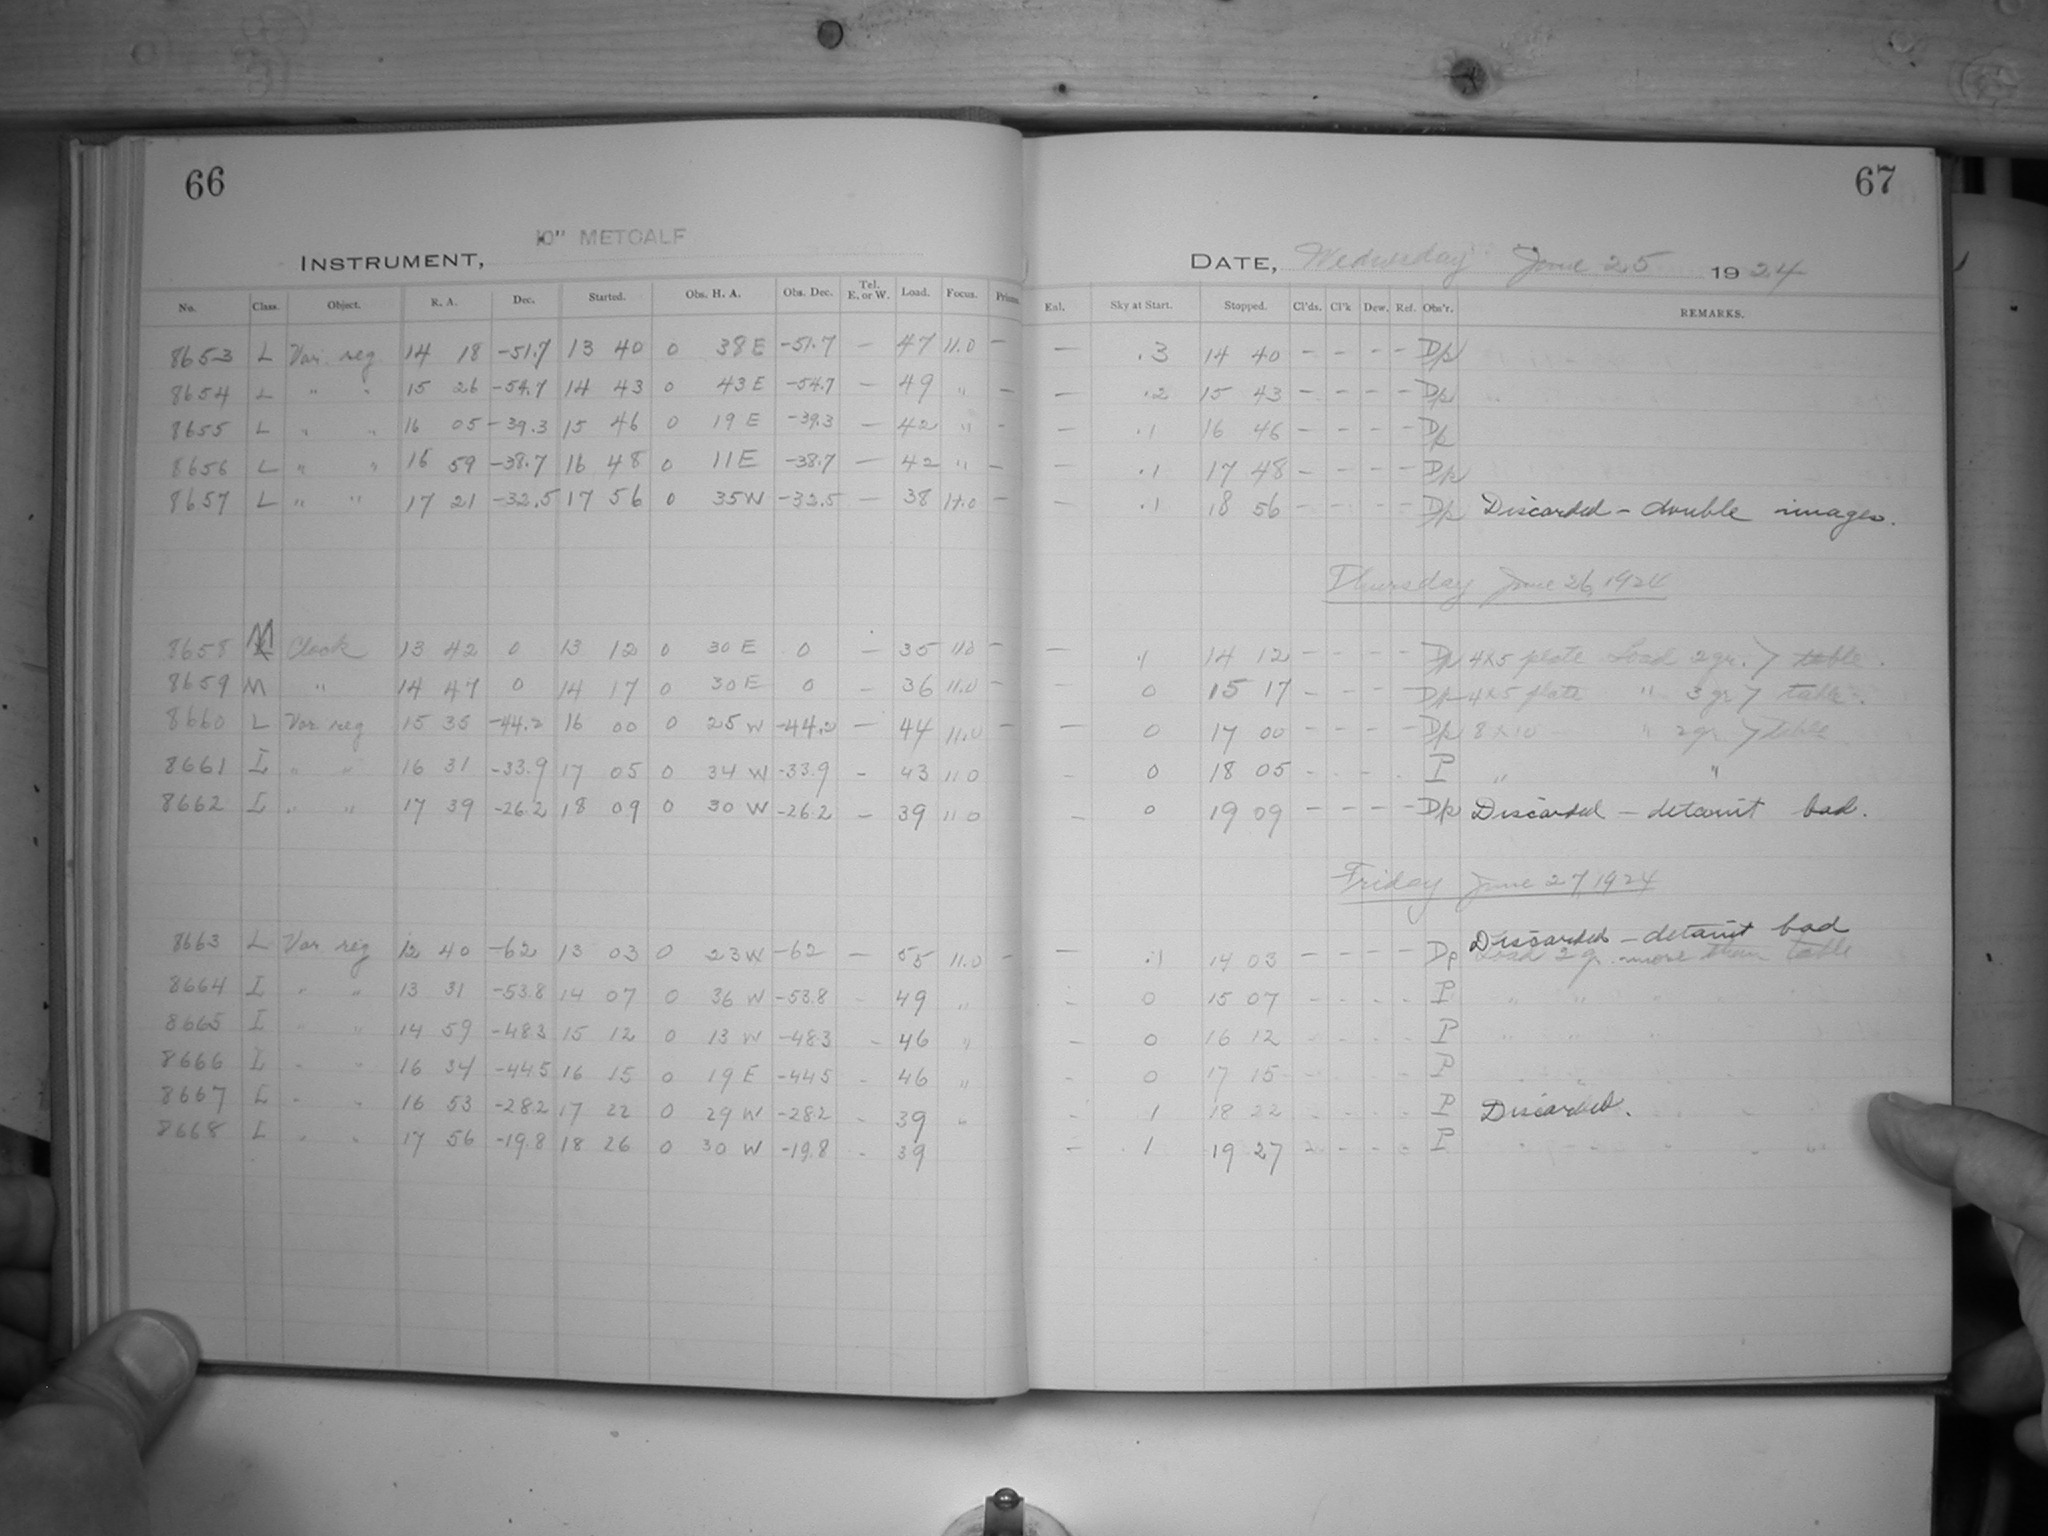 66
67
10" METCALF
INSTRUMENT,
DATE, Wednesday June 25 1924
No. Class. Object. R. A. Dec. Started. Obs. H. A. Obs. Dec. Tel. E. or W. Load. Focus. Prisms. Exl. Sky at Start. Stopped. Cl'ds. Cl'k Dew. Ref. Obs'r. REMARKS.
8653 L Var. reg 14 18 -51.7 13 40 0 38 E -51.7 — 47 11.0 — — .3 14 40 - - - - Dp
8654 L " " 15 26 -54.7 14 43 0 43 E -54.7 — 49 " — — .2 15 43 - - - - Dp
8655 L " " 16 05 -39.3 15 46 0 19 E -39.3 — 42 " - — .1 16 46 - - - - Dp
8656 L " " 16 59 -38.7 16 48 0 11 E -38.7 — 42 " — — .1 17 48 - - - - Dp
8657 L " " 17 21 -32.5 17 56 0 35 W -32.5 — 38 11.0 — — .1 18 56 - - - - Dp Discarded - double images.
Thursday June 26, 1924
8658 M Clock 13 42 0 13 12 0 30 E 0 — 35 11.0 — — 14 12 - - - - Dp 4x5 plate Load 2 gr. > table.
8659 M " 14 47 0 14 17 0 30 E 0 - 36 11.0 - — 0 15 17 - - - - Dp 4x5 plate " 3 gr > table.
8660 L Var reg 15 35 -44.2 16 00 0 25 W -44.2 — 44 11.0 — — 0 17 00 - - - - Dp 8x10 " 2 gr > table
8661 I " " 16 31 -33.9 17 05 0 34 W -33.9 - 43 11.0 - 0 18 05 - - - - P " "
8662 I " " 17 39 -26.2 18 09 0 30 W -26.2 — 39 11.0 - 0 19 09 - - - - Dp Discarded - detainit bad.
Friday June 27, 1924
Discarded - detainit bad
8663 L Var reg 12 40 -62 13 03 0 23 W -62 — 55 11.0 — — .1 14 03 - - - - Dp Load 2 gr. more than table
8664 I " " 13 31 -53.8 14 07 0 36 W -53.8 - 49 " - 0 15 07 - - - - P " " "
8665 I " " 14 59 -48.3 15 12 0 13 W -48.3 - 46 " - 0 16 12 - - - - P " " "
8666 I " " 16 34 -44.5 16 15 0 19 E -44.5 - 46 " - 0 17 15 - - - - P
8667 L " " 16 53 -28.2 17 22 0 29 W -28.2 - 39 " - 1 18 22 - - - - P Discarded.
8668 L " " 17 56 -19.8 18 26 0 30 W -19.8 - 39 - 1 19 27 - - - - P